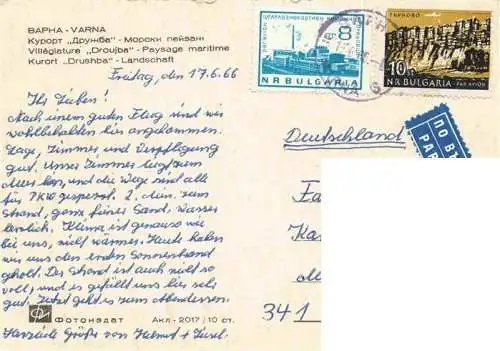 ВАРНА - VARNA
Курорт „Дружба" - Морски пейзаж
Villégiature „Droujba" - Paysage maritime
Kurort „Drushba" - Landschaft
Freitag, den 17.6.66
Ihr Lieben!
Nach einem guten Flug sind wir
wohlbehalten hier angekommen.
Lage, Zimmer und Verpflegung
gut. Unser Zimmer liegt zum
Meer hin, und die Wege sind alle
für PKW gesperrt. 2 Min. zum
Strand, ganz feiner Sand, Wasser
herrlich. Klima ist genauso wie
bei uns, nicht wärmer. Heute haben
wir uns den ersten Sonnenbrand
geholt. Der Strand ist auch nicht so
voll, und es gefällt uns hier sehr
gut. Jetzt geht es zum Abendessen.
Herzliche Grüße von Helmut +
Фотоиздат
Акл - 2017 / 10 ст.
8
NR BULGARIA
ТЪРНОВО
10
N.R. BULGARIA
PAR AVION
Deutschland
ПО ВЪ
PAR
Fa
Ka
341